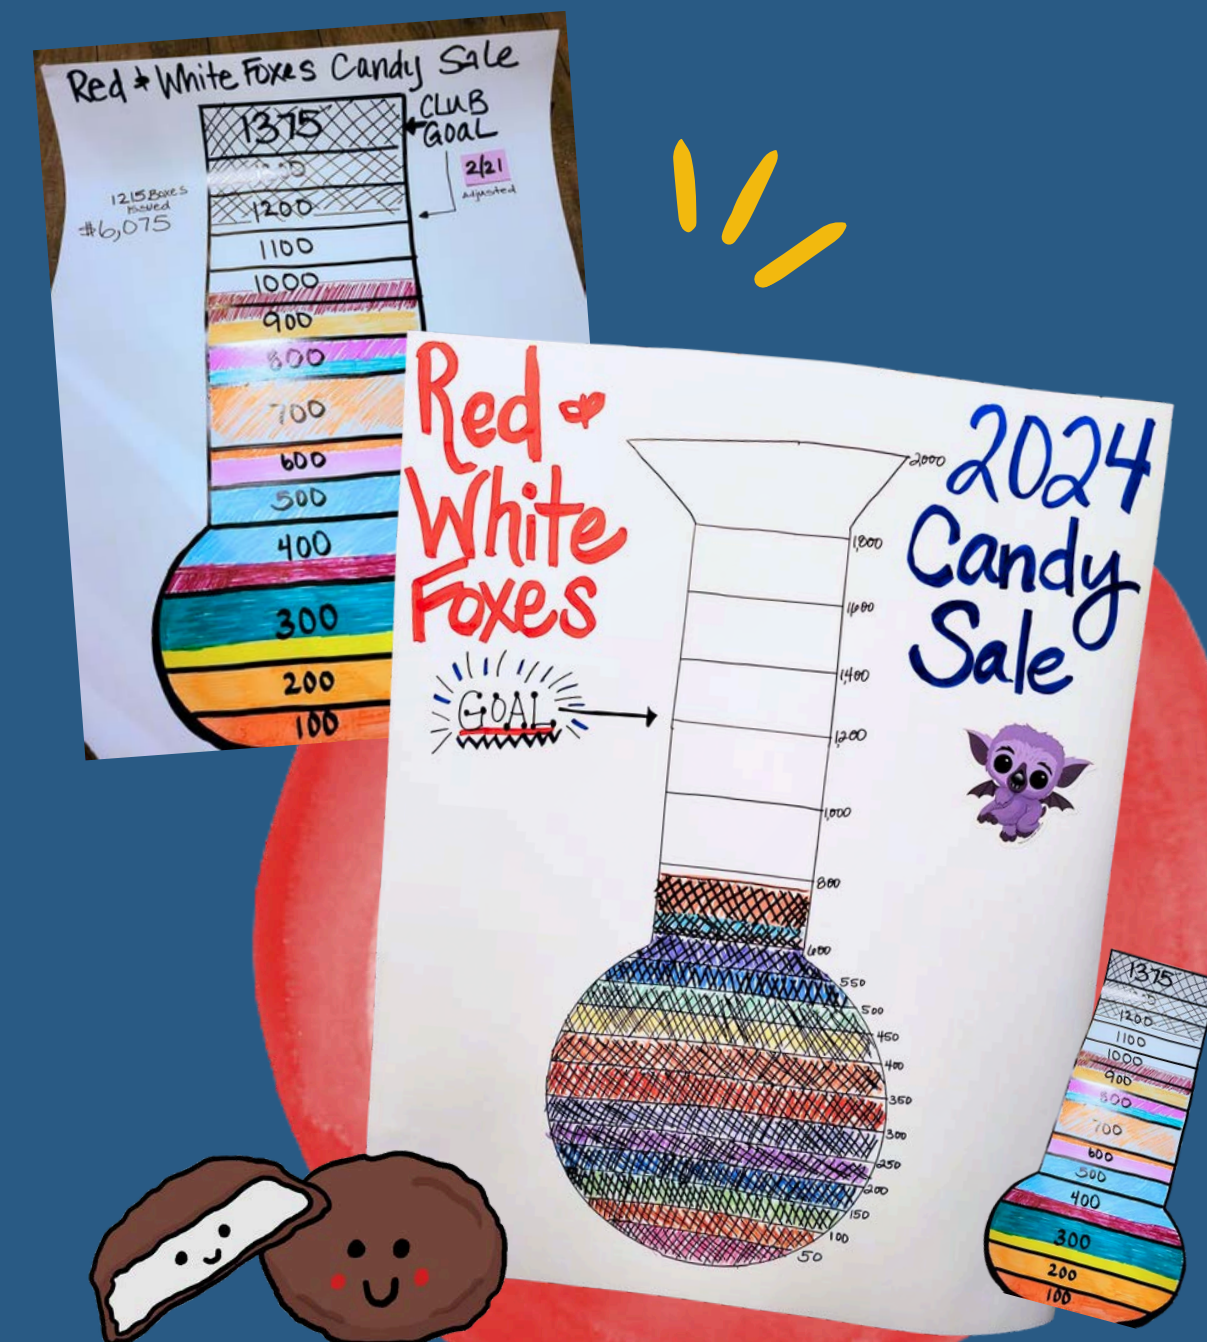 Red & White Foxes Candy Sale
1375
CLUB
GOAL
2/21
Adjusted
1215 Boxes
issued
$6,075
1200
1100
1000
900
800
700
600
500
400
300
200
100
Red &
White
Foxes
GOAL
2024
Candy
Sale
2,000
1,800
1,600
1,400
1,200
1,000
800
600
550
500
450
400
350
300
250
200
150
100
50
1375
1200
1100
1000
900
800
700
600
500
400
300
200
100